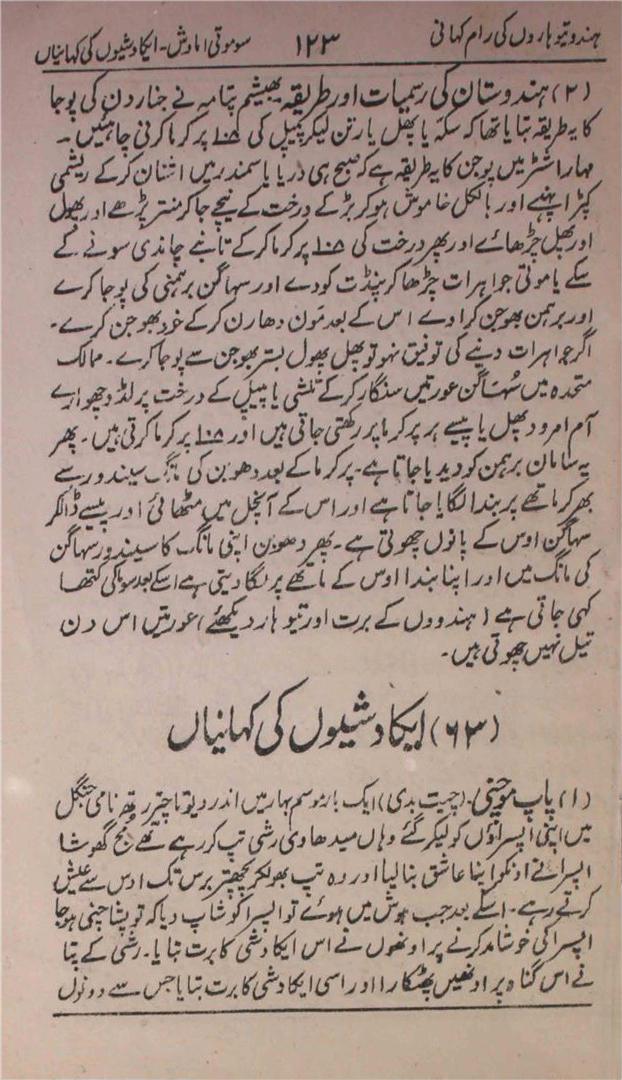 ہندو تیوہاروں کی رام کہانی ۱۲۳ سوموتی اماوش۔ ایکادشیوں کی کہانیاں
(۲) ہندوستان کی رسمیات اور طریقہ بھیشم پتامہ نے جنار دن کی پوجا
کا یہ طریقہ بتایا تھا کہ سکہ یا پھل یا رتن لیکر پیپل کی ۱۰۸ پرکرما کرنی چاہئیں۔
مہاراشٹر میں پوجن کا یہ طریقہ ہے کہ صبح ہی دریا یا سمندر میں اشنان کر کے ریشمی
کپڑا پہنے اور بالکل خاموش ہو کر بڑ کے درخت کے نیچے جا کر منتر پڑھے اور پھول
اور پھل چڑھائے اور پھر درخت کی ۱۰۸ پرکرما کر کے تانبے چاندی سونے کے
سکے یا موتی جواہرات چڑھا کر پنڈت کو دے اور سہاگن برہمنی کی پوجا کرے
اور برہمن بھوجن کراوے اس کے بعد مون دھارن کر کے خود بھوجن کرے۔
اگر جواہرات دینے کی توفیق نہو تو پھل پھول بستر بھوجن سے پوجا کرے۔ ممالک
متحدہ میں سُہاگن عورتیں سنگار کر کے تلسی یا پیپل کے درخت پر لڈو چھوارے
آم امرود پھل یا پیسے ہر پرکرما پر رکھتی جاتی ہیں اور ۱۰۸ پرکرما کرتی ہیں۔ پھر
یہ سامان برہمن کو دیدیا جاتا ہے۔ پرکرما کے بعد دھوبن کی مانگ سیندور سے
بھر کر ماتھے پر بندا لگایا جاتا ہے اور اس کے آنچل میں مٹھائی اور پیسے ڈالکر
سہاگن اوس کے پانوں چھوتی ہے۔ پھر دھوبن اپنی مانگ کا سیندور سہاگن
کی مانگ میں اور اپنا بندا اوس کے ماتھے پر لگا دیتی ہے اسکے بعد سوما کی کتھا
کہی جاتی ہے (ہندووں کے برت اور تیوہار دیکھئے) عورتیں اس دن
تیل نہیں چھوتی ہیں۔
(۶۳) ایکادشیوں کی کہانیاں
(۱) پاپ موچنی۔ (چیت بدی) ایک بار موسم بہار میں اندر دیوتا چتر رتھ نامی جنگل
میں اپنی اپسراؤں کو لیکر گئے وہاں میدھاوی رشی تپ کر رہے تھے منج گھوشا
اپسرا نے انکو اپنا عاشق بنا لیا اور وہ تپ بھولکر پچھتر برس تک اوس سے عیش
کرتے رہے۔ اسکے بعد جب ہوش میں ہوئے تو اپسرا کو شاپ دیا کہ تو پشاچنی ہو جا
اپسرا کی خوشامد کرنے پر اونھوں نے اس ایکادشی کا برت بتایا۔ رشی کے پتا
نے اس گناہ پر اونھیں پھٹکارا اور اسی ایکادشی کا برت بتایا جس سے دونوں